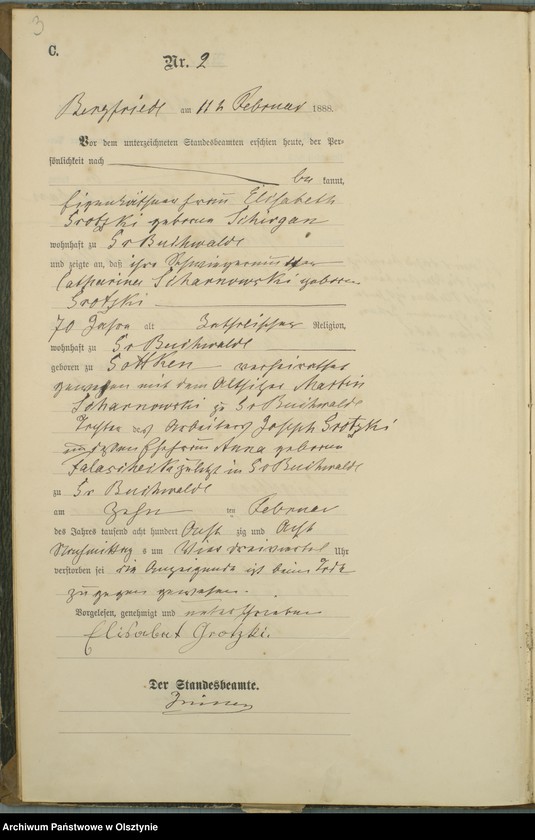 3
C.
Nr. 2
Bergfriede am 11 ten Februar 1888.
Vor dem unterzeichneten Standesbeamten erschien heute, der Per-
sönlichkeit nach
be kannt,
Eigenkäthner frau Elisabeth
Grotzki geborne Schirgan
wohnhaft zu Gr Buchwalde
und zeigte an, daß ihre Schwiegermutter
Catharina Scharnowski geborne
Grotzki
70 Jahre alt katholischer Religion,
wohnhaft zu Gr Buchwalde
geboren zu Gottken verheirathet
gewesen mit dem Altsitzer Martin
Scharnowski zu Gr Buchwalde
Tochter des Arbeiters Joseph Grotzki
und dessen Ehefrau Anna geborne
zuletzt in Gr Buchwalde
zu Gr Buchwalde
am zehn ten Februar
des Jahres tausend acht hundert Acht zig und Acht
Nachmittag s um Vier dreiviertel Uhr
verstorben sei die Anzeigende ist beim Tode
zugegen gewesen.
Vorgelesen, genehmigt und unterschrieben
Elisabet Grotzki.
Der Standesbeamte.
Archiwum Państwowe w Olsztynie